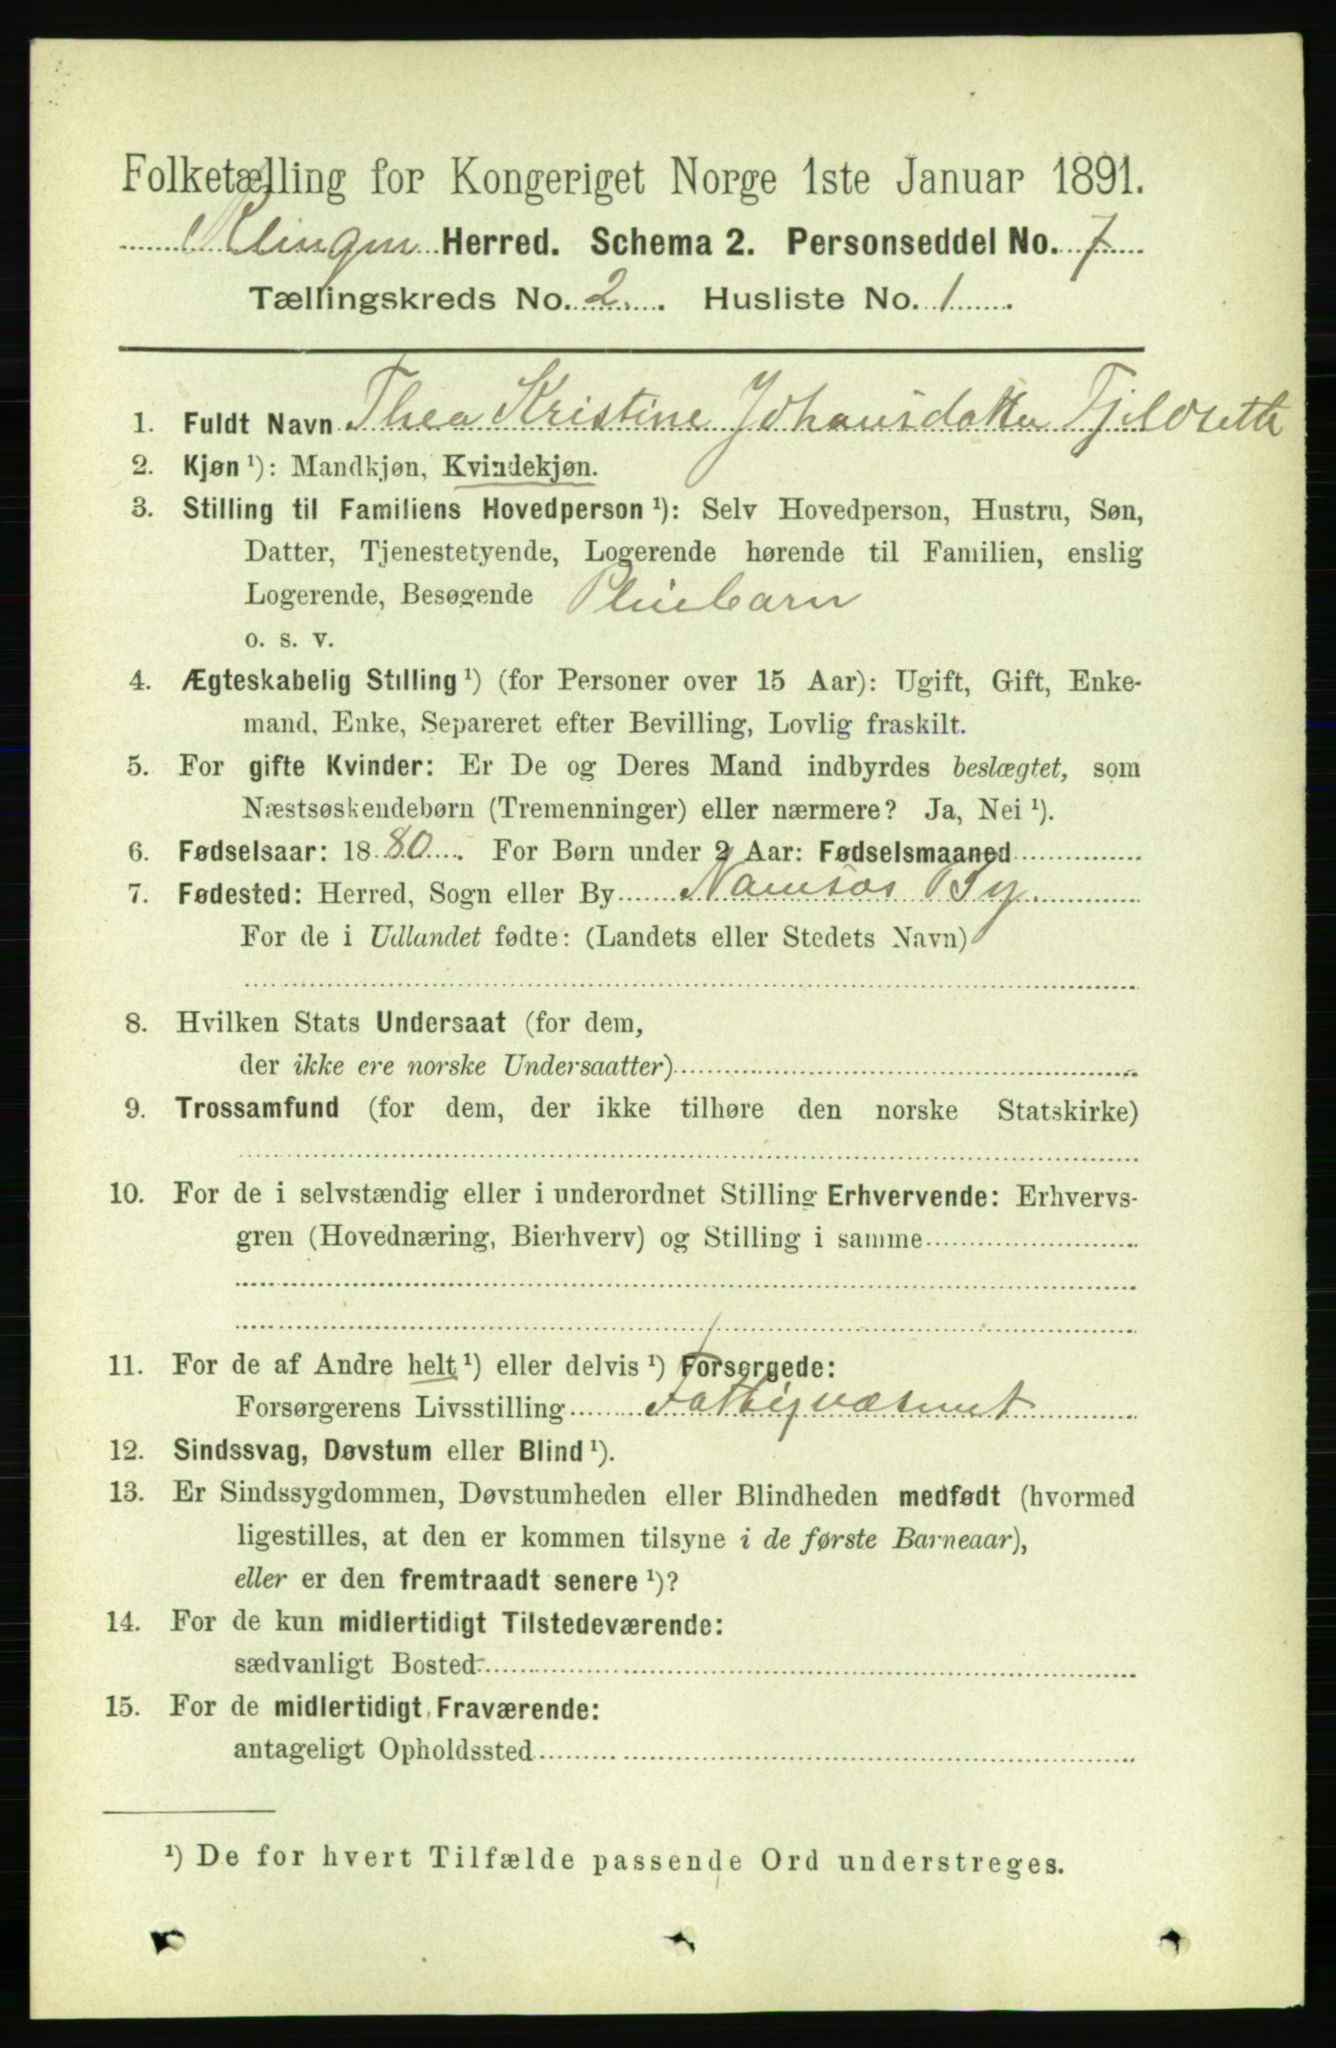 Folketælling for Kongeriget Norge 1ste Januar 1891.
Klingen Herred. Schema 2. Personseddel No. 7
Tællingskreds No. 2. Husliste No. 1
1. Fuldt Navn Thea Kristine Johansdatter Tjeldseth
2. Kjøn ¹): Mandkjøn, Kvindekjøn.
3. Stilling til Familiens Hovedperson ¹): Selv Hovedperson, Hustru, Søn,
Datter, Tjenestetyende, Logerende hørende til Familien, enslig
Logerende, Besøgende Pleiebarn
o. s. v.
4. Ægteskabelig Stilling ¹) (for Personer over 15 Aar): Ugift, Gift, Enke-
mand, Enke, Separeret efter Bevilling, Lovlig fraskilt.
5. For gifte Kvinder: Er De og Deres Mand indbyrdes beslægtet, som
Næstsøskendebørn (Tremenninger) eller nærmere? Ja, Nei ¹).
6. Fødselsaar: 1880. For Børn under 2 Aar: Fødselsmaaned
7. Fødested: Herred, Sogn eller By Namsos By
For de i Udlandet fødte: (Landets eller Stedets Navn)
8. Hvilken Stats Undersaat (for dem,
der ikke ere norske Undersaatter)
9. Trossamfund (for dem, der ikke tilhøre den norske Statskirke)
10. For de i selvstændig eller i underordnet Stilling Erhvervende: Erhvervs-
gren (Hovednæring, Bierhverv) og Stilling i samme
11. For de af Andre helt ¹) eller delvis ¹) Forsørgede:
Forsørgerens Livsstilling Fattigvæsenet
12. Sindssvag, Døvstum eller Blind ¹).
13. Er Sindssygdommen, Døvstumheden eller Blindheden medfødt (hvormed
ligestilles, at den er kommen tilsyne i de første Barneaar),
eller er den fremtraadt senere ¹)?
14. For de kun midlertidigt Tilstedeværende:
sædvanligt Bosted
15. For de midlertidigt Fraværende:
antageligt Opholdssted
¹) De for hvert Tilfælde passende Ord understreges.